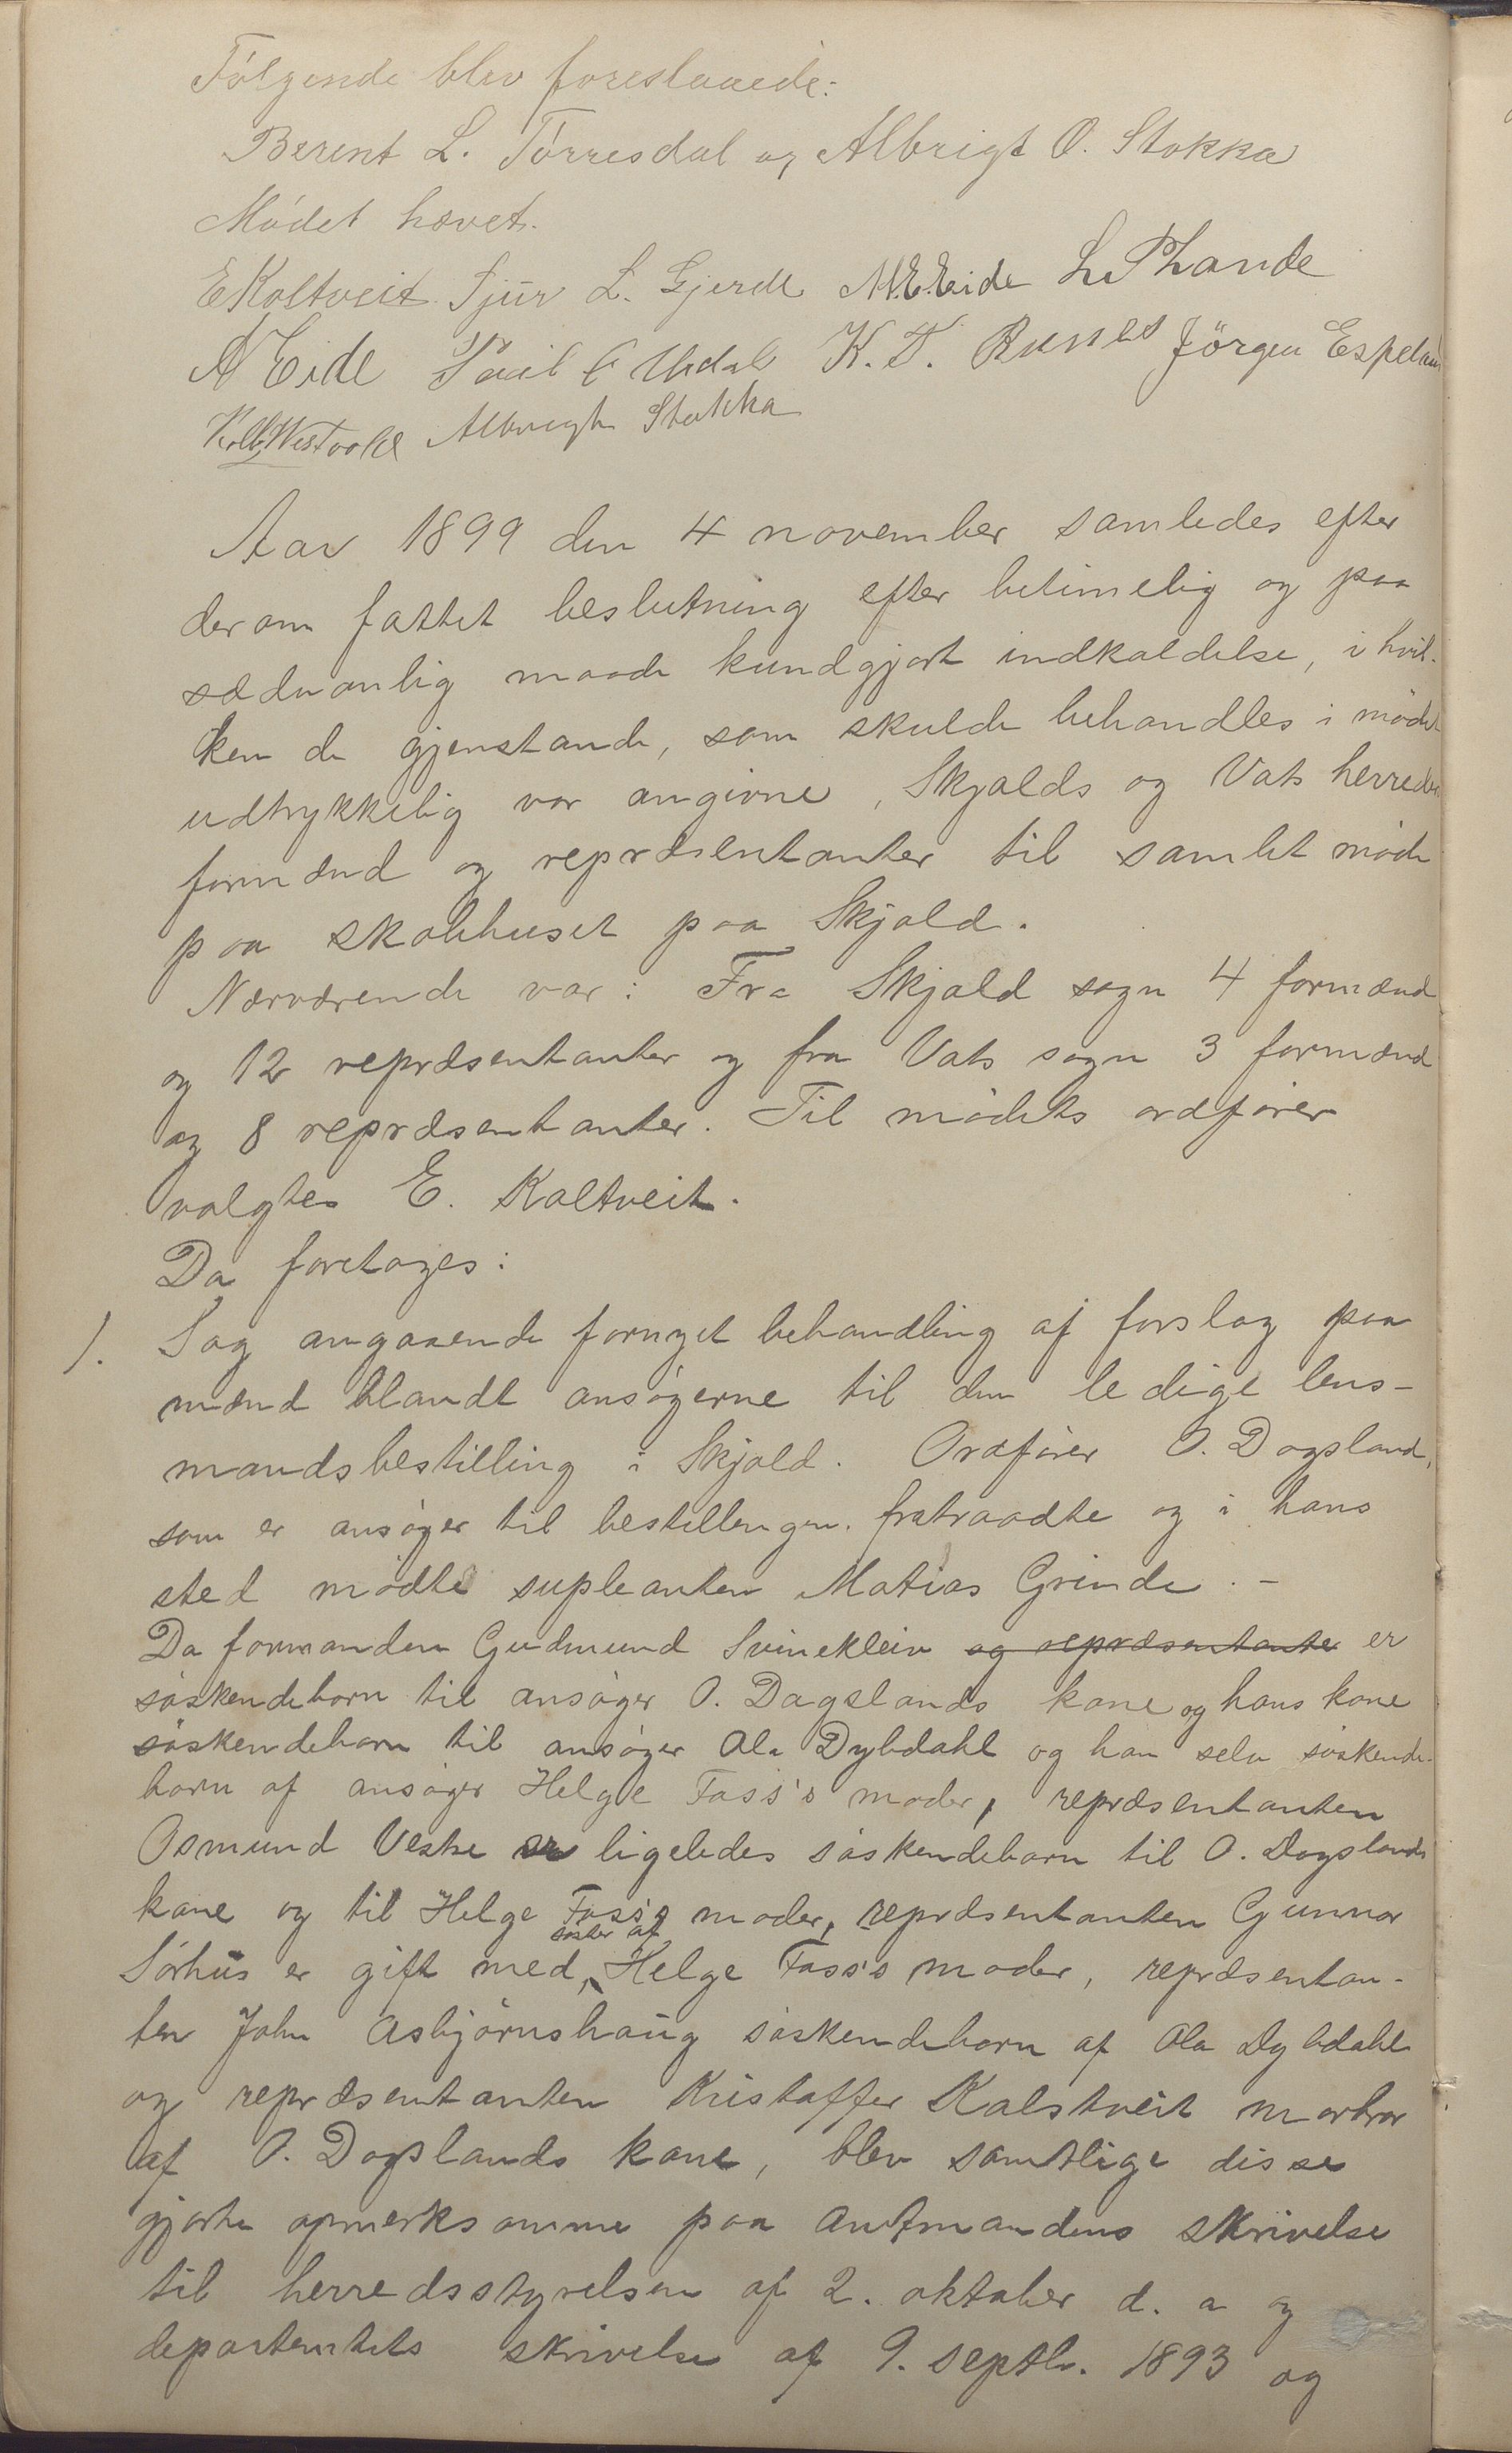 Følgende blev foreslaaede:
Berent L. Tørresdal og Albrigt O. Stokka
Mødet hævet.
E Kaltveit Sjur L. Gjerde M. E. Eide L. P. Lande
A Eide K. T. Jörgen Espeland
Albrigt Stokka
Aar 1899 den 4 november samledes efter
derom fattet beslutning efter betimelig og paa
sædvanlig maade kundgjort indkaldelse, i hvil-
ken de gjenstande, som skulde behandles i mødet
udtrykkelig var angivne, Skjolds og Vats herreders
formænd og repræsentanter til samlet møde
paa skolehuset paa Skjold.
Nærværende var: Fra Skjold sogn 4 formænd
og 12 repræsentanter og fra Vats sogn 3 formænd
og 8 repræsentanter. Til mødets ordfører
valgtes E. Kaltveit.
Da foretoges:
1. Sag angaaende fornyet behandling af forslag paa
mænd blandt ansøgerne til den ledige lens-
mandsbestilling i Skjold. Ordfører O. Dagsland,
som er ansøger til bestillingen, fratraadte og i hans
sted mødte supleanten Matias Grinde. -
Da formanden Gudmund Svinekleiv og repræsentante er
søskendebarn til ansøger O. Dagslands kone og hans kone
søskendebarn til ansøger Ola Dybdahl og han selv søskende-
barn af ansøger Helge Foss's moder, repræsentanten
Osmund Vestre er ligeledes søskendebarn til O. Dagslands
kone og til Helge Foss's moder, repræsentanten Gunnar
Sørhus er gift med søster af Helge Foss's moder, repræsentan-
ten John Asbjørnshaug søskendebarn af Ola Dybdahl
og repræsentanten Kristoffer Kalstveit morbror
af O. Dagslands kone, blev samtlige disse
gjorte opmerksomme paa amtmandens skrivelse
til herredsstyrelsen af 2. oktober d. a og
departemtets skrivelse af 9. septb. 1893 og